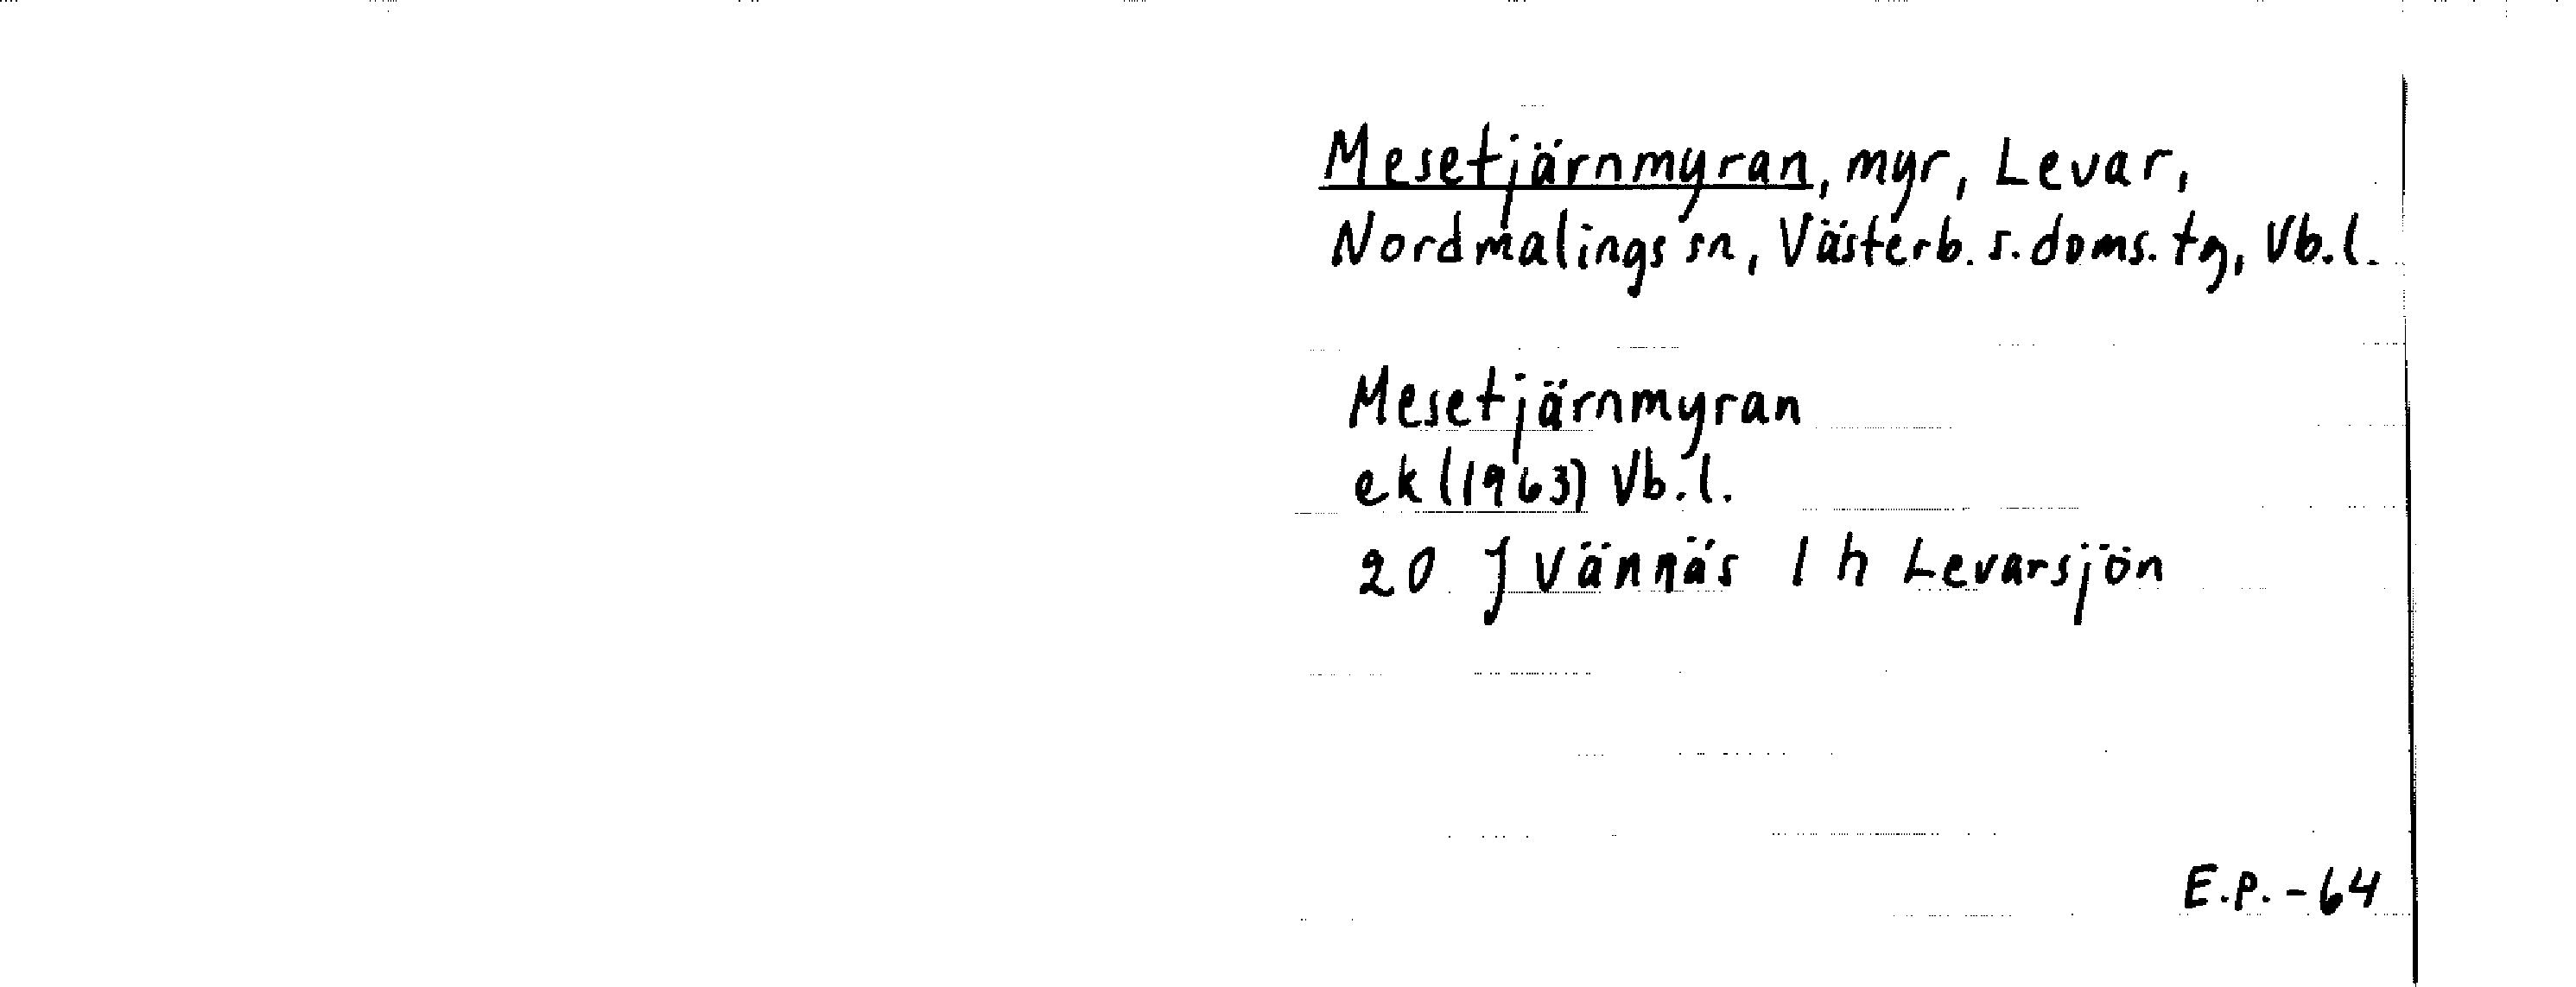 Mesetjärnmyran, myr, Levar,
Nordmalings sn, Västerb. s. doms. tg, Vb.l.
Mesetjärnmyran
ek (1963) Vb.l.
20 J Vännäs 1 h Levarsjön
E.P. - 64